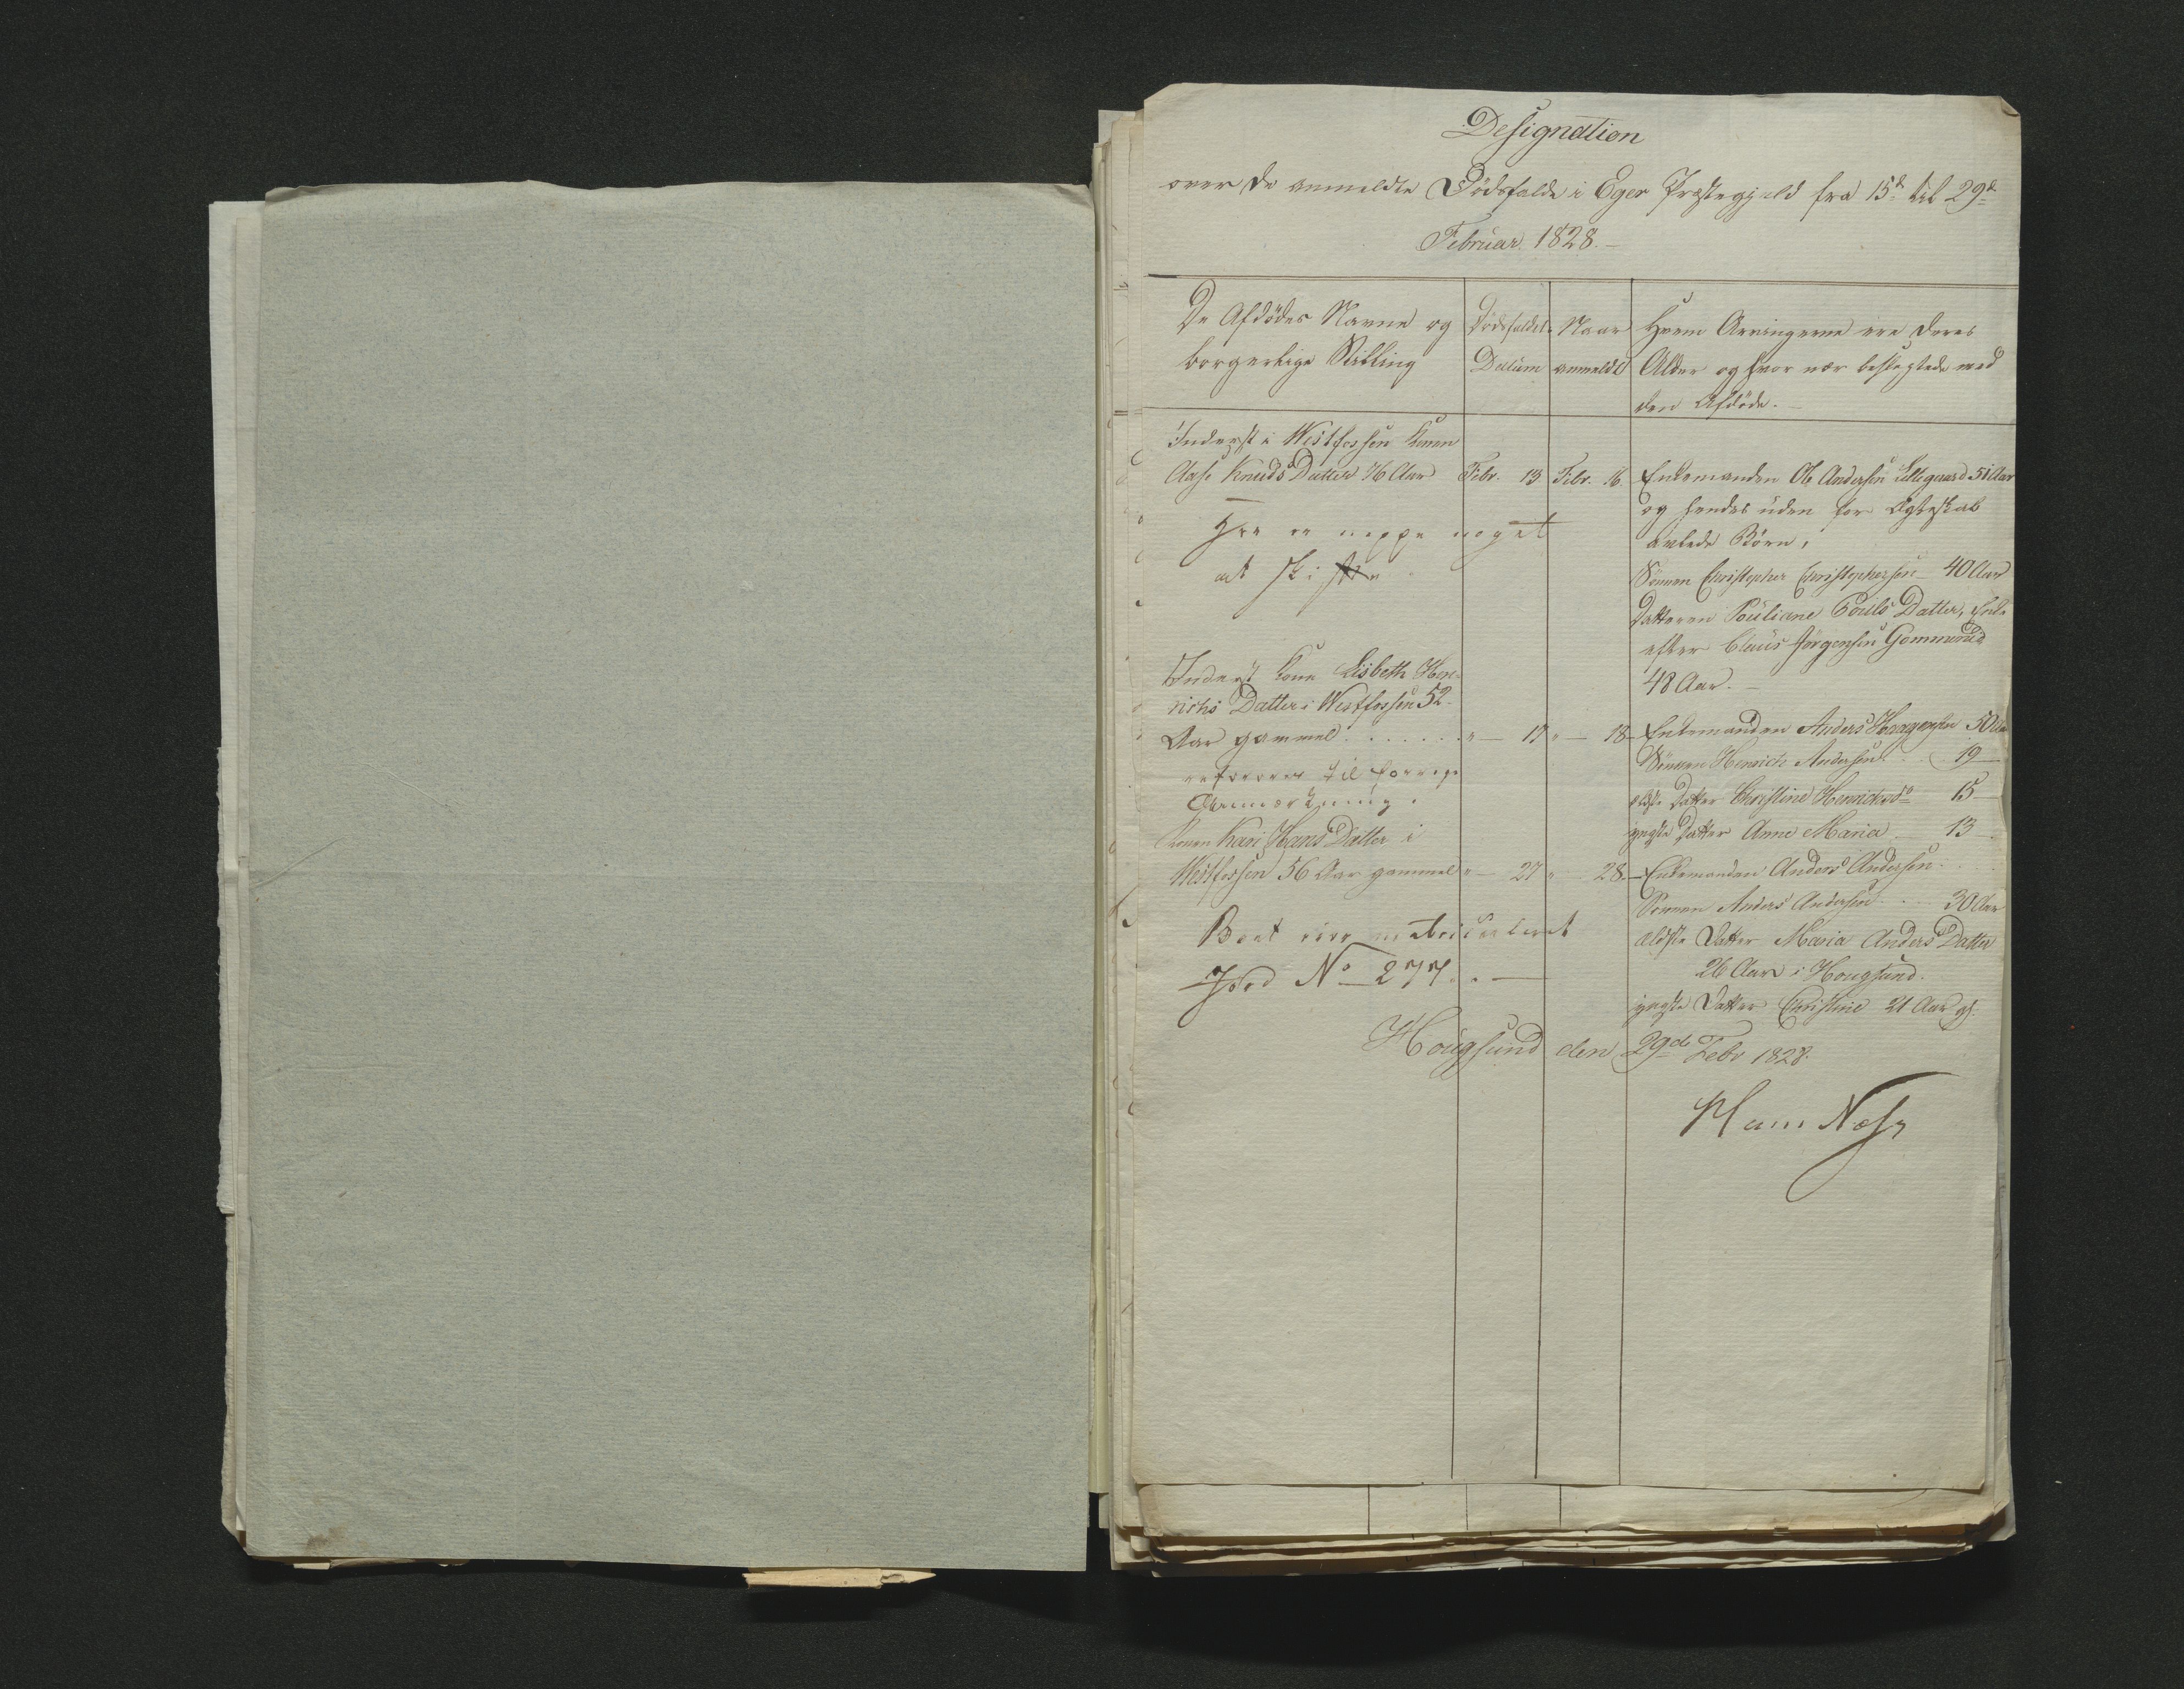 Designation
over de anmeldte Dödsfalde i Eger Præstegjeld fra 15d til 29d
Februar 1828.
De Afdödes Navne og
borgerlige Stilling
Dödsfaldets
Datum
Naar
anmeldt
Hvem Arvingerne ere deres
Alder og hvor nær beslegtede med
den Afdöde.
Inderst i Westfossen Konen
Aase Knuds Datter 76 Aar Febr. 13 Febr. 16.
Her er neppe noget
at skifte
Enkemanden Ole Andersen Lillegaard 51 Aar
og hendes uden for Ægteskab
avlede Börn,
Sönnen Christopher Christophersen 40 Aar
Datteren Pouliane Pouls Datter, Enke
efter Claus Jörgensen Gommerud
48 Aar.
Inderst Kone Lisbeth Hen-
richs Datter i Westfossen 52
Aar gammel . . . . . . " 17 " 18
refereres til forrige
Anmærkning.
Enkemanden Anders 50 Aar
Sönnen Henrich Andersen . . 19
eldste Datter Christine 15
yngste Datter Anne Maria 13
Konen Kari Hans Datter i
Westfossen 56 Aar gammel " 27 " 28.
Boet eier matriculeret
Jord No 277.
Enkemanden Anders Andersen
Sönnen Anders Andersen . . 30 Aar
ældste Datter Maria Anders Datter
26 Aar i Hougsund.
yngste Datter Christine 21 Aar gl.
Hougsund den 29de Febr 1828.